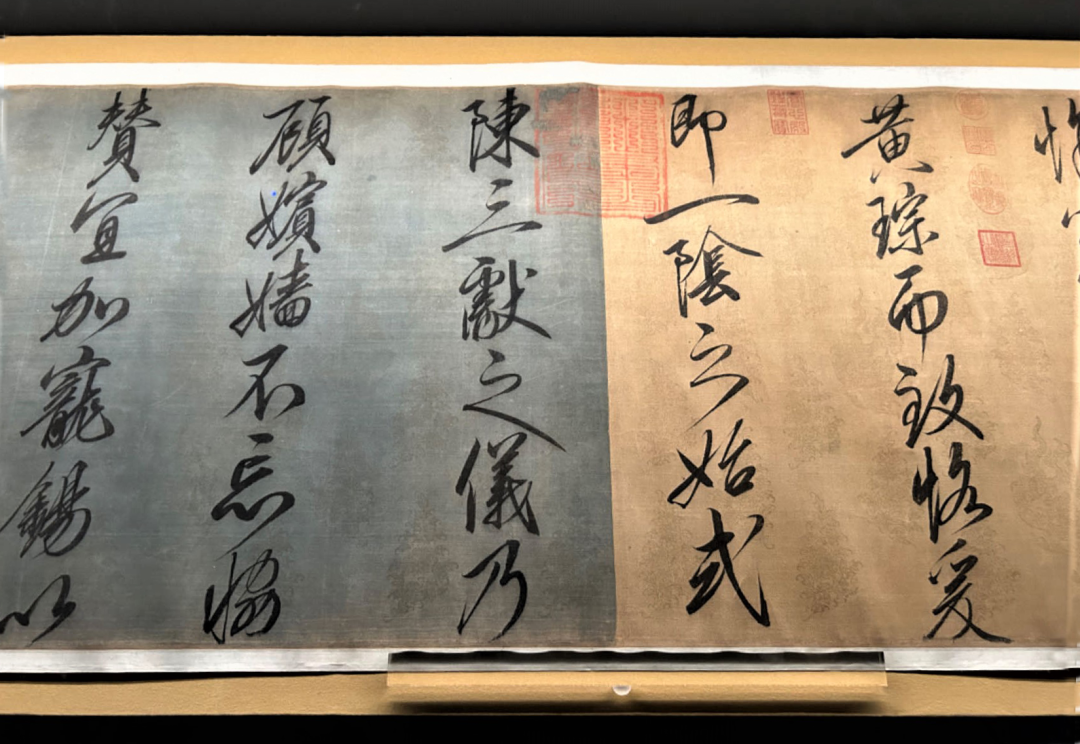 黃琮而致恪爰
即一陰之始式
陳三獻之儀乃
顧嬪嬙不忘恊
賛宜加寵錫以